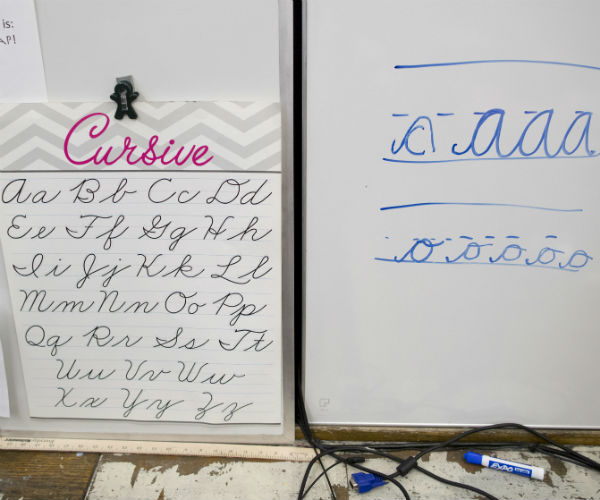 is:
AP!
Cursive
Aa Bb Cc Dd
Ee Ff Gg Hh
Ii Jj Kk Ll
Mm Nn Oo Pp
Qq Rr Ss Tt
Uu Vv Ww
Xx Yy Zz
a a a a
o o o o o
EXPO